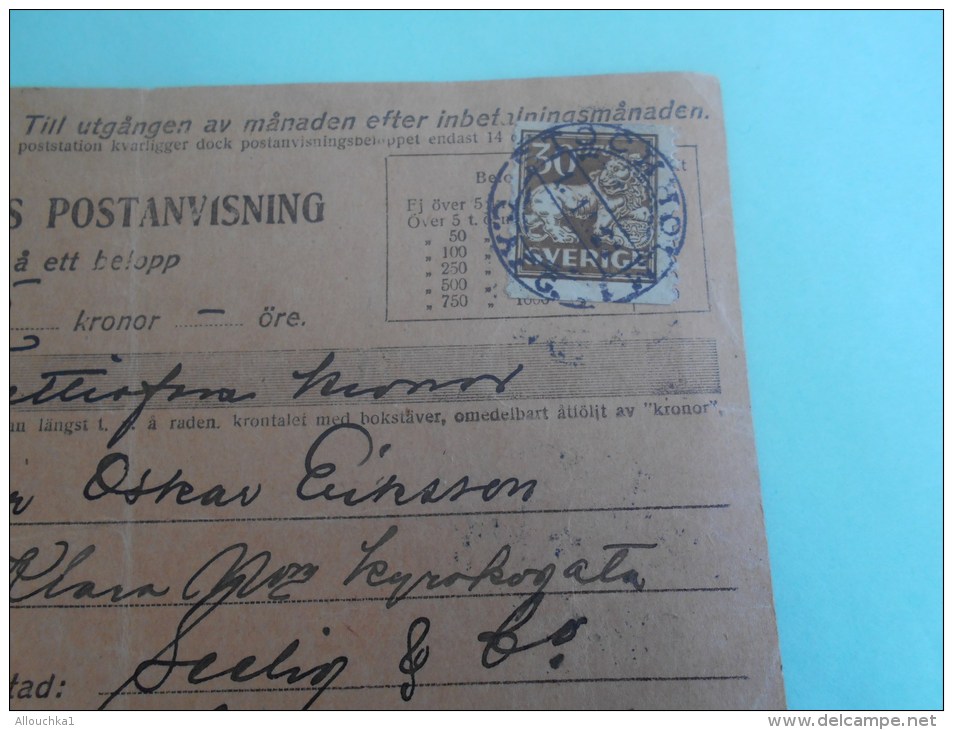 Till utgången av månaden efter inbetalningsmånaden.
poststation kvarligger dock postanvisningsbeloppet endast 14
S POSTANVISNING
å ett belopp
kronor — öre.
Belo
Ej över 5
Över 5 t. ö. m.
„ 50 „
„ 100
„ 250
„ 500
„ 750 „ 1000
30
SVERIGE
kronor
längst t. å raden. krontalet med bokstäver, omedelbart åtföljt av "kronor".
Oskar Eriksson
Klara Kyrokogata
Seelig & Co
tad:
Allouchka1
http://www.delcampe.net